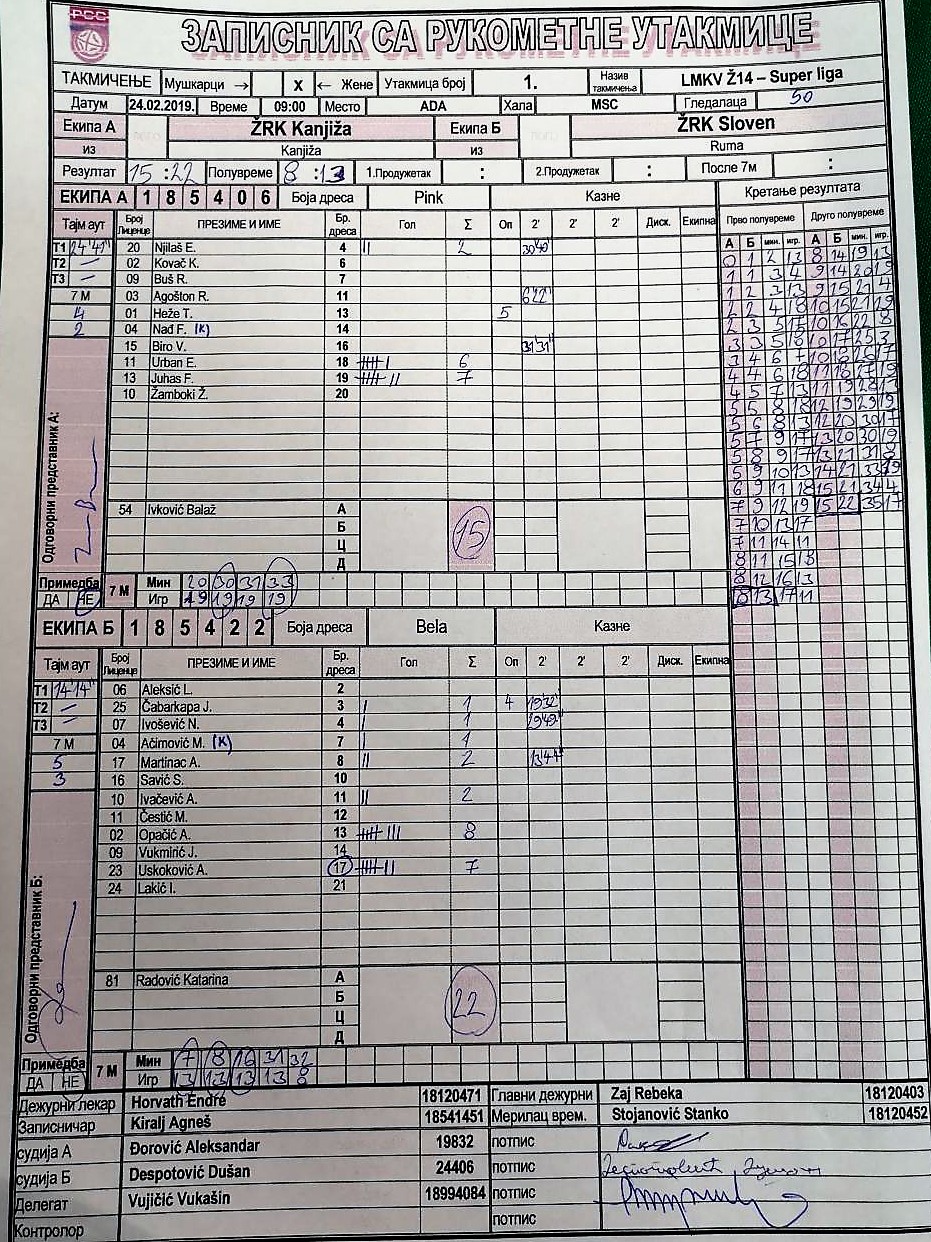 РСС
ЗАПИСНИК СА РУКОМЕТНЕ УТАКМИЦЕ
ТАКМИЧЕЊЕ Мушкарци → X ← Жене Утакмица број 1. Назив такмичења LMKV Ž14 – Super liga
Датум 24.02.2019. Време 09:00 Место ADA Хала MSC Гледалаца 50
Екипа А ŽRK Kanjiža Екипа Б ŽRK Sloven
из Kanjiža из Ruma
Резултат 15 : 22 Полувреме 8 : 13 1.Продужетак : 2.Продужетак : После 7м :
ЕКИПА А 1 8 5 4 0 6 Боја дреса Pink Казне Кретање резултата
Тајм аут Број Лиценце ПРЕЗИМЕ И ИМЕ Бр. дреса Гол Σ Оп 2' 2' 2' Диск. Екипна Прво полувреме Друго полувреме
А Б мин. игр. А Б мин. игр.
T1 24'47" 20 Njilaš E. 4 || 2 30'40"
T2 – 02 Kovač K. 6
T3 – 09 Buš R. 7
7 М 03 Agošton R. 11 6'22"
4 01 Heže T. 13 5
2 04 Nađ F. (K) 14
15 Biro V. 16 31'31"
11 Urban E. 18 6
13 Juhas F. 19 7
10 Žamboki Ž. 20
0 1 2 13 8 14 19 13
1 1 3 4 9 14 20 19
1 2 3 13 9 15 21 4
2 2 4 18 10 15 21 19
2 3 5 17 10 16 22 8
3 3 5 18 10 17 25 3
3 4 6 7 10 18 26 17
4 4 6 18 11 18 27 19
4 5 7 13 11 19 28 13
5 5 8 18 12 19 29 19
5 6 8 13 12 20 30 17
5 7 9 17 13 20 30 19
5 8 9 17 13 21 31 8
5 9 10 13 14 21 33 19
6 9 11 18 15 21 34 4
7 9 12 19 15 22 35 17
7 10 13 17
7 11 14 11
8 11 15 18
8 12 16 13
8 13 17 11
Одговорни представник А:
54 Ivković Balaž А
Б
Ц
Д
15
Примедба ДА НЕ 7 М Мин 20 30 31 33
Игр 19 19 19 19
ЕКИПА Б 1 8 5 4 2 2 Боја дреса Bela Казне
Тајм аут Број Лиценце ПРЕЗИМЕ И ИМЕ Бр. дреса Гол Σ Оп 2' 2' 2' Диск. Екипна
T1 14'14" 06 Aleksić L. 2
T2 – 25 Čabarkapa J. 3 | 1 4 19'32"
T3 – 07 Ivošević N. 4 | 1 29'49"
7 М 04 Aćimović M. (K) 7 | 1
5 17 Martinac A. 8 || 2 13'44"
3 16 Savić S. 10
10 Ivačević A. 11 || 2
11 Čestić M. 12
02 Opačić A. 13 8
09 Vukmirić J. 14
23 Uskoković A. 17 7
24 Lakić I. 21
Одговорни представник Б:
81 Radović Katarina А
Б
Ц
Д
22
Примедба ДА НЕ 7 М Мин 7 8 16 31 32
Игр 13 13 13 13 8
Дежурни лекар Horvath Endre 18120471 Главни дежурни Zaj Rebeka 18120403
Записничар Kiralj Agneš 18541451 Мерилац врем. Stojanović Stanko 18120452
судија А Đorović Aleksandar 19832 потпис
судија Б Despotović Dušan 24406 потпис
Делегат Vujičić Vukašin 18994084 потпис
Контролор потпис